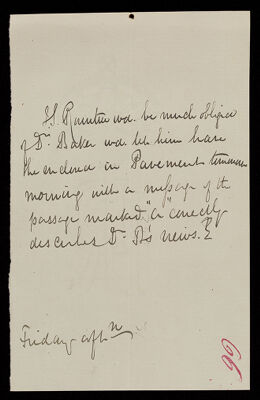 H. Rowntree wd. be much obliged
if Dr. Baker wd. let him have
the enclosed in Pavement tomorrow
morning with a message if the
passage marked "a" correctly
describes Dr. B's news.?
Friday aftn